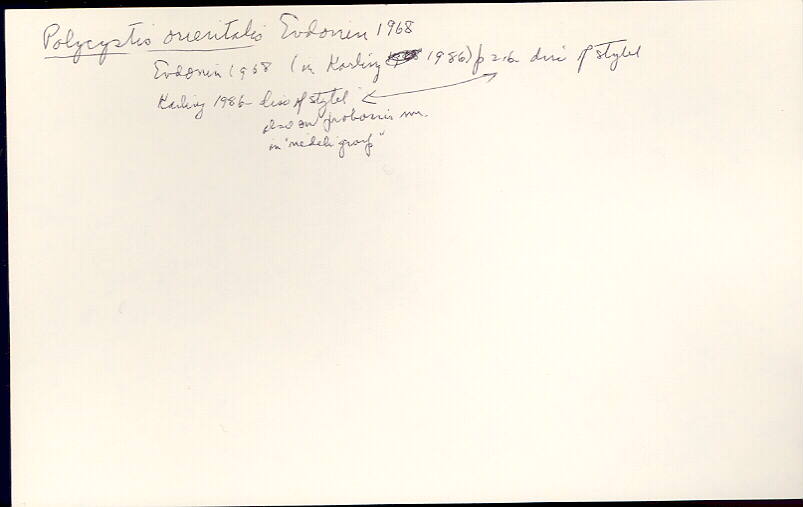 Polycystis orientalis Evdonin 1968
Evdonin 1968 (in Karling 1986) p 216 disc of stylet
Karling 1986 - disc of stylet
also on proboscis mm.
in "nedeli group"